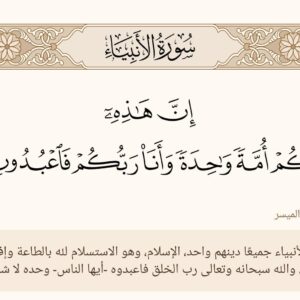 سُورَةُ الأَنبِيَاءِ
إِنَّ هَٰذِهِۦٓ
كُمْ أُمَّةً وَٰحِدَةً وَأَنَا۠ رَبُّكُمْ فَٱعْبُدُو
الميسر
أنبياء جميعًا دينهم واحد، الإسلام، وهو الاستسلام لله بالطاعة وإف
والله سبحانه وتعالى رب الخلق فاعبدوه -أيها الناس- وحده لا ش